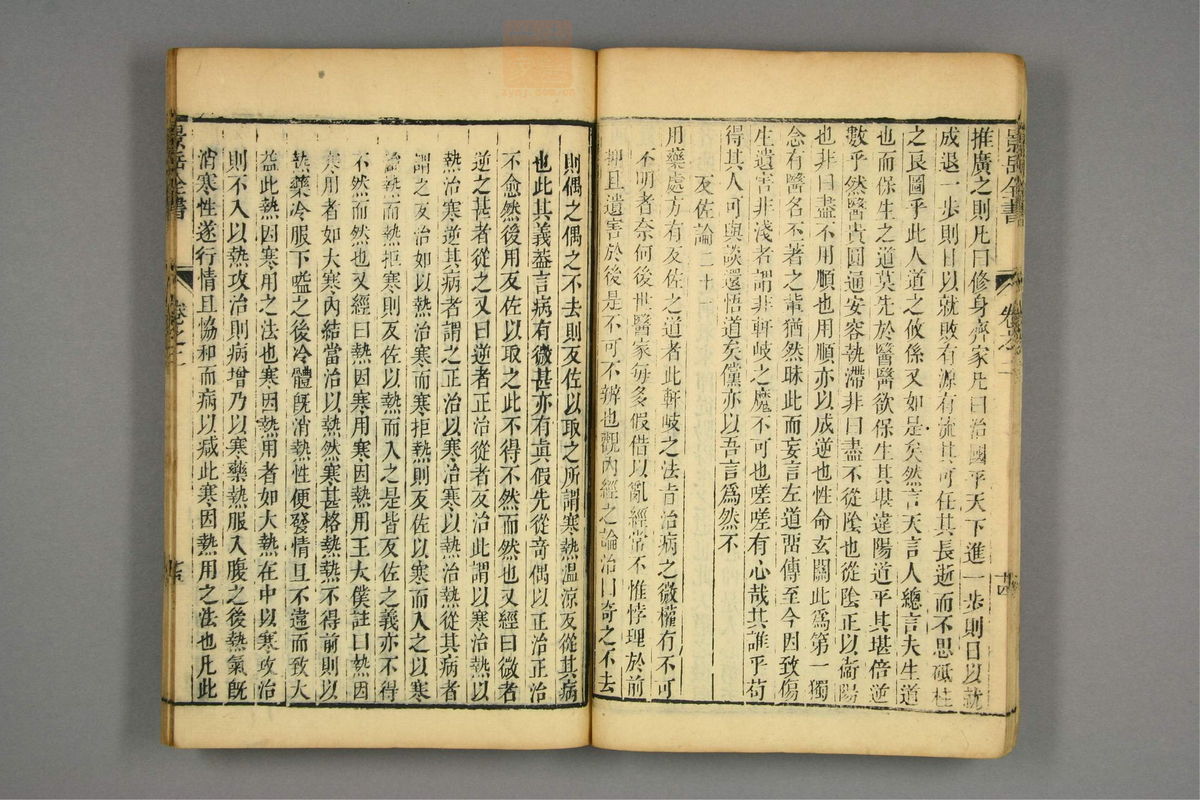 景岳全書 卷之二
推廣之則凡曰修身齊家凡曰治國平天下進一步則日以就
成退一步則日以就敗有源有流其可任其長逝而不思砥柱
之良圖乎此人道之攸係又如是矣然言天言人總言夫生道
也而保生之道莫先於醫醫欲保生其堪違陽道乎其堪倍逆
數乎然醫貴圓通安容執滯非曰盡不從陰也從陰正以衛陽
也非曰盡不用順也用順亦以成逆也性命玄關此爲第一獨
念有醫名不著之輩猶然昧此而妄言左道畱傳至今因致傷
生遺害非淺者謂非軒岐之魔不可也嗟嗟有心哉其誰乎苟
得其人可與談還悟道矣儻亦以吾言爲然不
反佐論二十
用藥處方有反佐之道者此軒岐之法旨治病之微權有不可
不明者奈何後世醫家每多假借以亂經常不惟悖理於前
抑且遺害於後是不可不辨也觀內經之論治曰奇之不去
則偶之偶之不去則反佐以取之所謂寒熱溫涼反從其病
也此其義葢言病有微甚亦有眞假先從奇偶以正治正治
不愈然後用反佐以取之此不得不然而然也又經曰微者
逆之甚者從之又曰逆者正治從者反治此謂以寒治熱以
熱治寒逆其病者謂之正治以寒治寒以熱治熱從其病者
謂之反治如以熱治寒而寒拒熱則反佐以寒而入之以寒
治熱而熱拒寒則反佐以熱而入之是皆反佐之義亦不得
不然而然也又經曰熱因寒用寒因熱用王太僕註曰熱因
寒用者如大寒內結當治以熱然寒甚格熱熱不得前則以
熱藥冷服下嗌之後冷體旣消熱性便發情且不違而致大
益此熱因寒用之法也寒因熱用者如大熱在中以寒攻治
則不入以熱攻治則病增乃以寒藥熱服入腹之後熱氣旣
消寒性遂行情且恊和而病以減此寒因熱用之法也凡此
景岳全書 卷之二